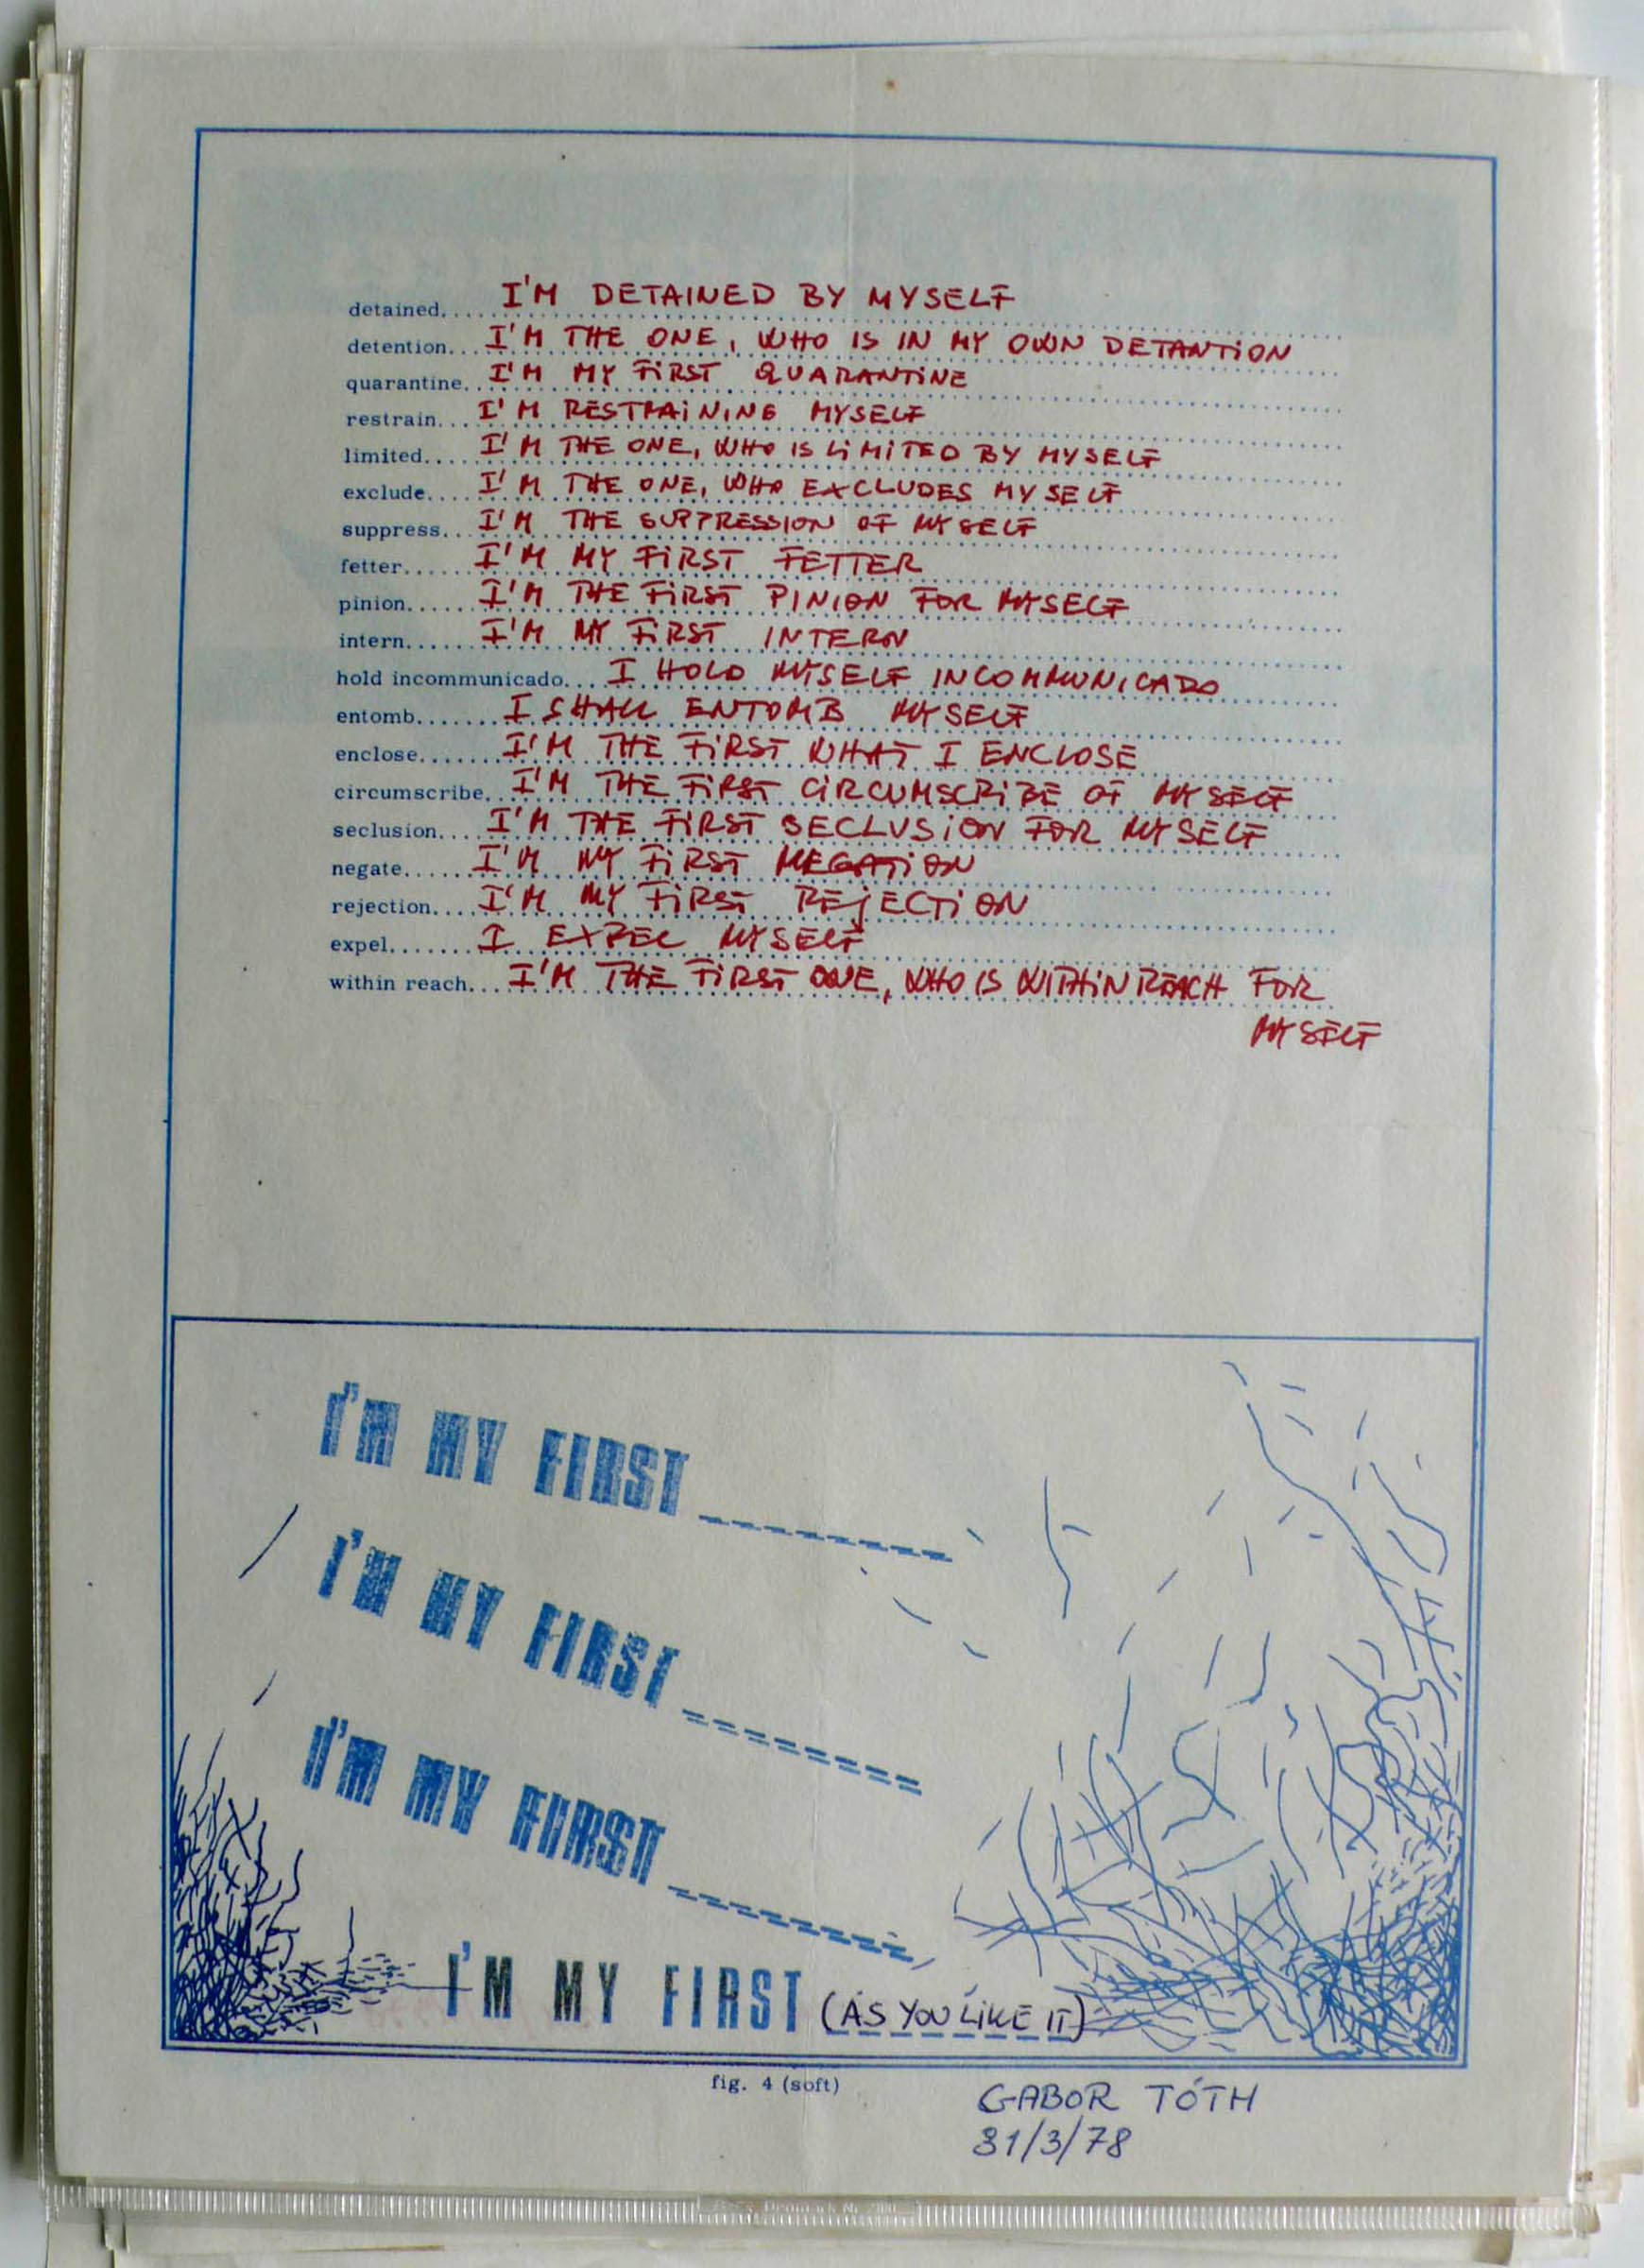 detained.... I'M DETAINED BY MYSELF
detention... I'M THE ONE, WHO IS IN MY OWN DETANTION
quarantine.. I'M MY FIRST QUARANTINE
restrain.... I'M RESTRAINING MYSELF
limited..... I'M THE ONE, WHO IS LIMITED BY MYSELF
exclude..... I'M THE ONE, WHO EXCLUDES MYSELF
suppress... I'M THE SUPPRESSION OF MYSELF
fetter...... I'M MY FIRST FETTER
pinion...... I'M THE FIRST PINION FOR MYSELF
intern...... I'M MY FIRST INTERN
hold incommunicado.... I HOLD MYSELF INCOMMUNICADO
entomb....... I SHALL ENTOMB MYSELF
enclose....... I'M THE FIRST WHAT I ENCLOSE
circumscribe. I'M THE FIRST CIRCUMSCRIBE OF MYSELF
seclusion.... I'M THE FIRST SECLUSION FOR MYSELF
negate...... I'M MY FIRST NEGATION
rejection.... I'M MY FIRST REJECTION
expel....... I EXPEL MYSELF
within reach... I'M THE FIRST ONE, WHO IS WITHIN REACH FOR
MYSELF
I'M MY FIRST
I'M MY FIRST
I'M MY FIRST
I'M MY FIRST (AS YOU LIKE IT)
fig. 4 (soft)
GABOR TÓTH
31/3/78